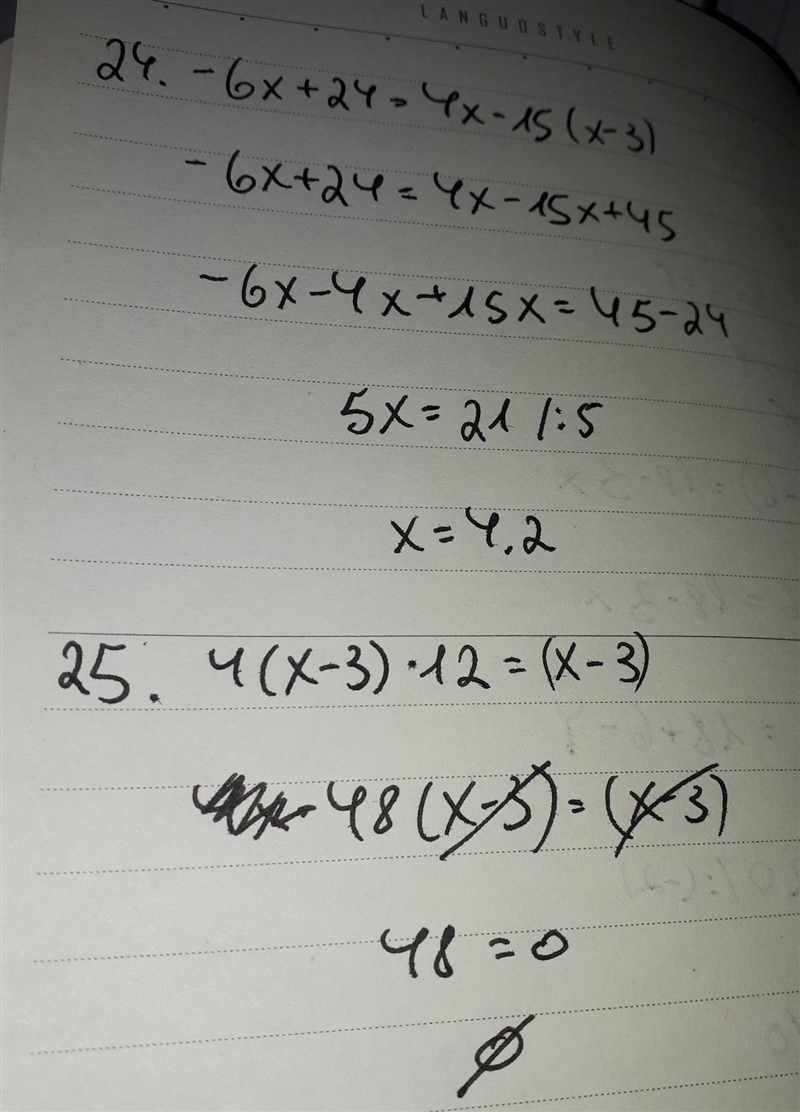 LANGUOSTYLE
24. -6x+24=4x-15(x-3)
-6x+24=4x-15x+45
-6x-4x+15x=45-24
5x=21 /:5
x=4.2
25. 4(x-3)·12=(x-3)
48(x-3)=(x-3)
48=0
∅